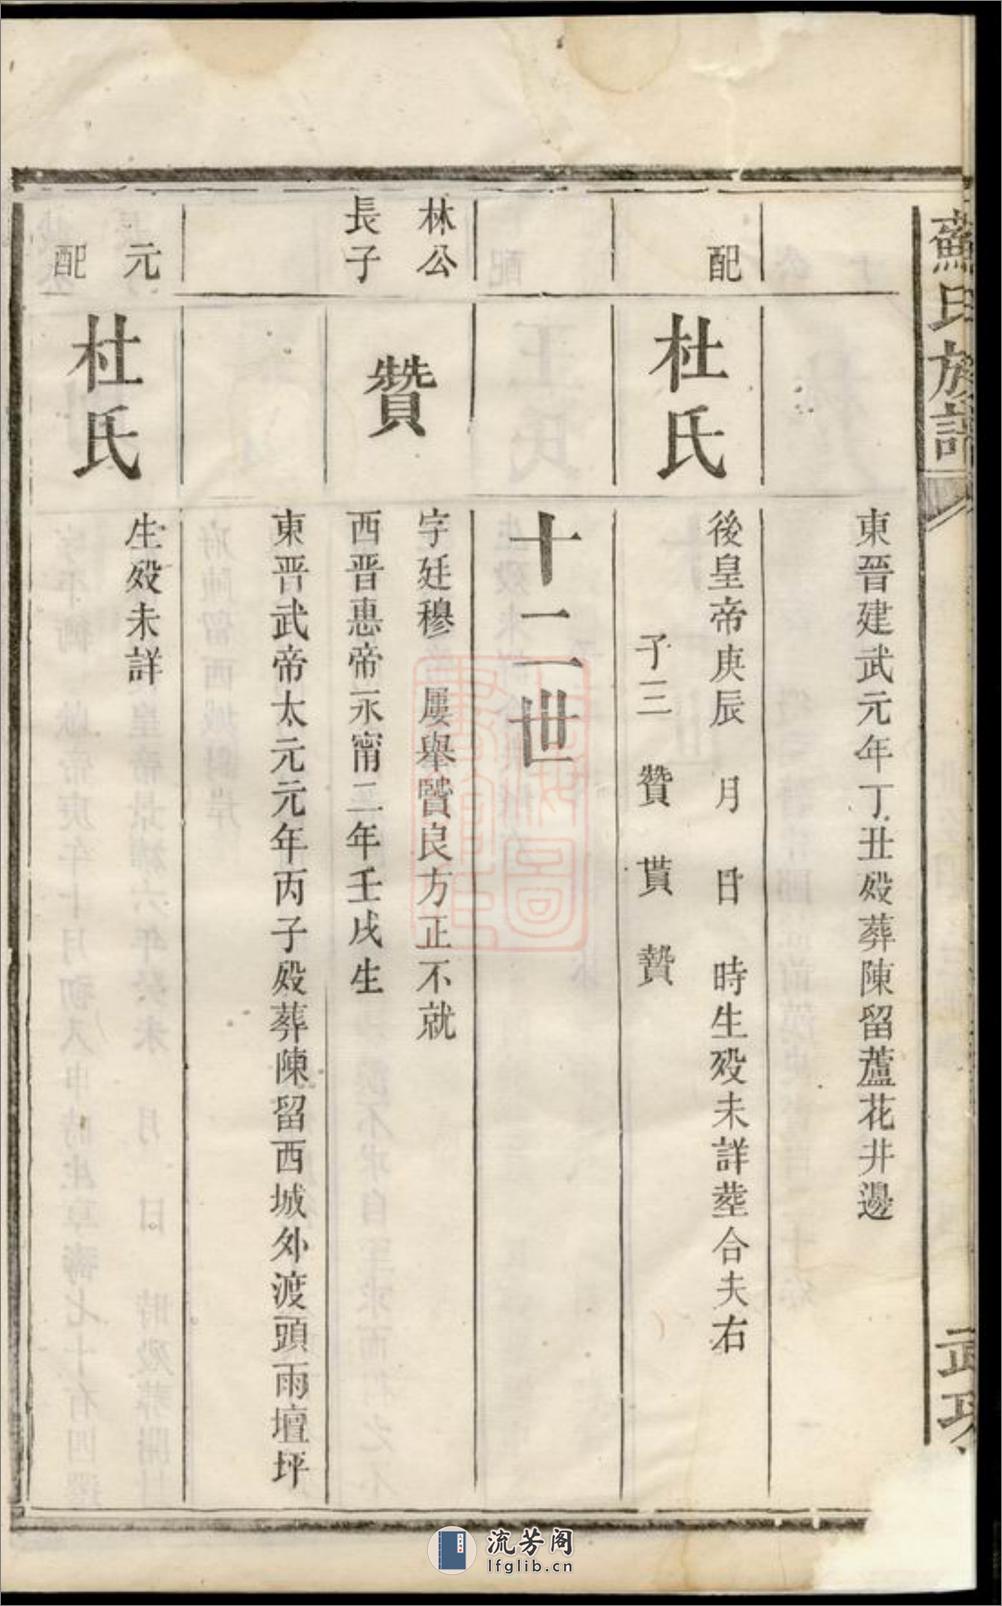 蘇氏族譜
武功
東晉建武元年丁丑歿葬陳留蘆花井邊
配
杜氏
後皇帝庚辰 月 日 時生歿未詳塟合夫右
子三 贊 貰 贄
十二世
林公
長子
贊
字廷穆 屢舉賢良方正不就
西晋惠帝永甯二年壬戌生
東晋武帝太元元年丙子歿葬陳留西城外渡頭雨壇坪
元
配
杜氏
生歿未詳
流芳阁
lfglib.cn